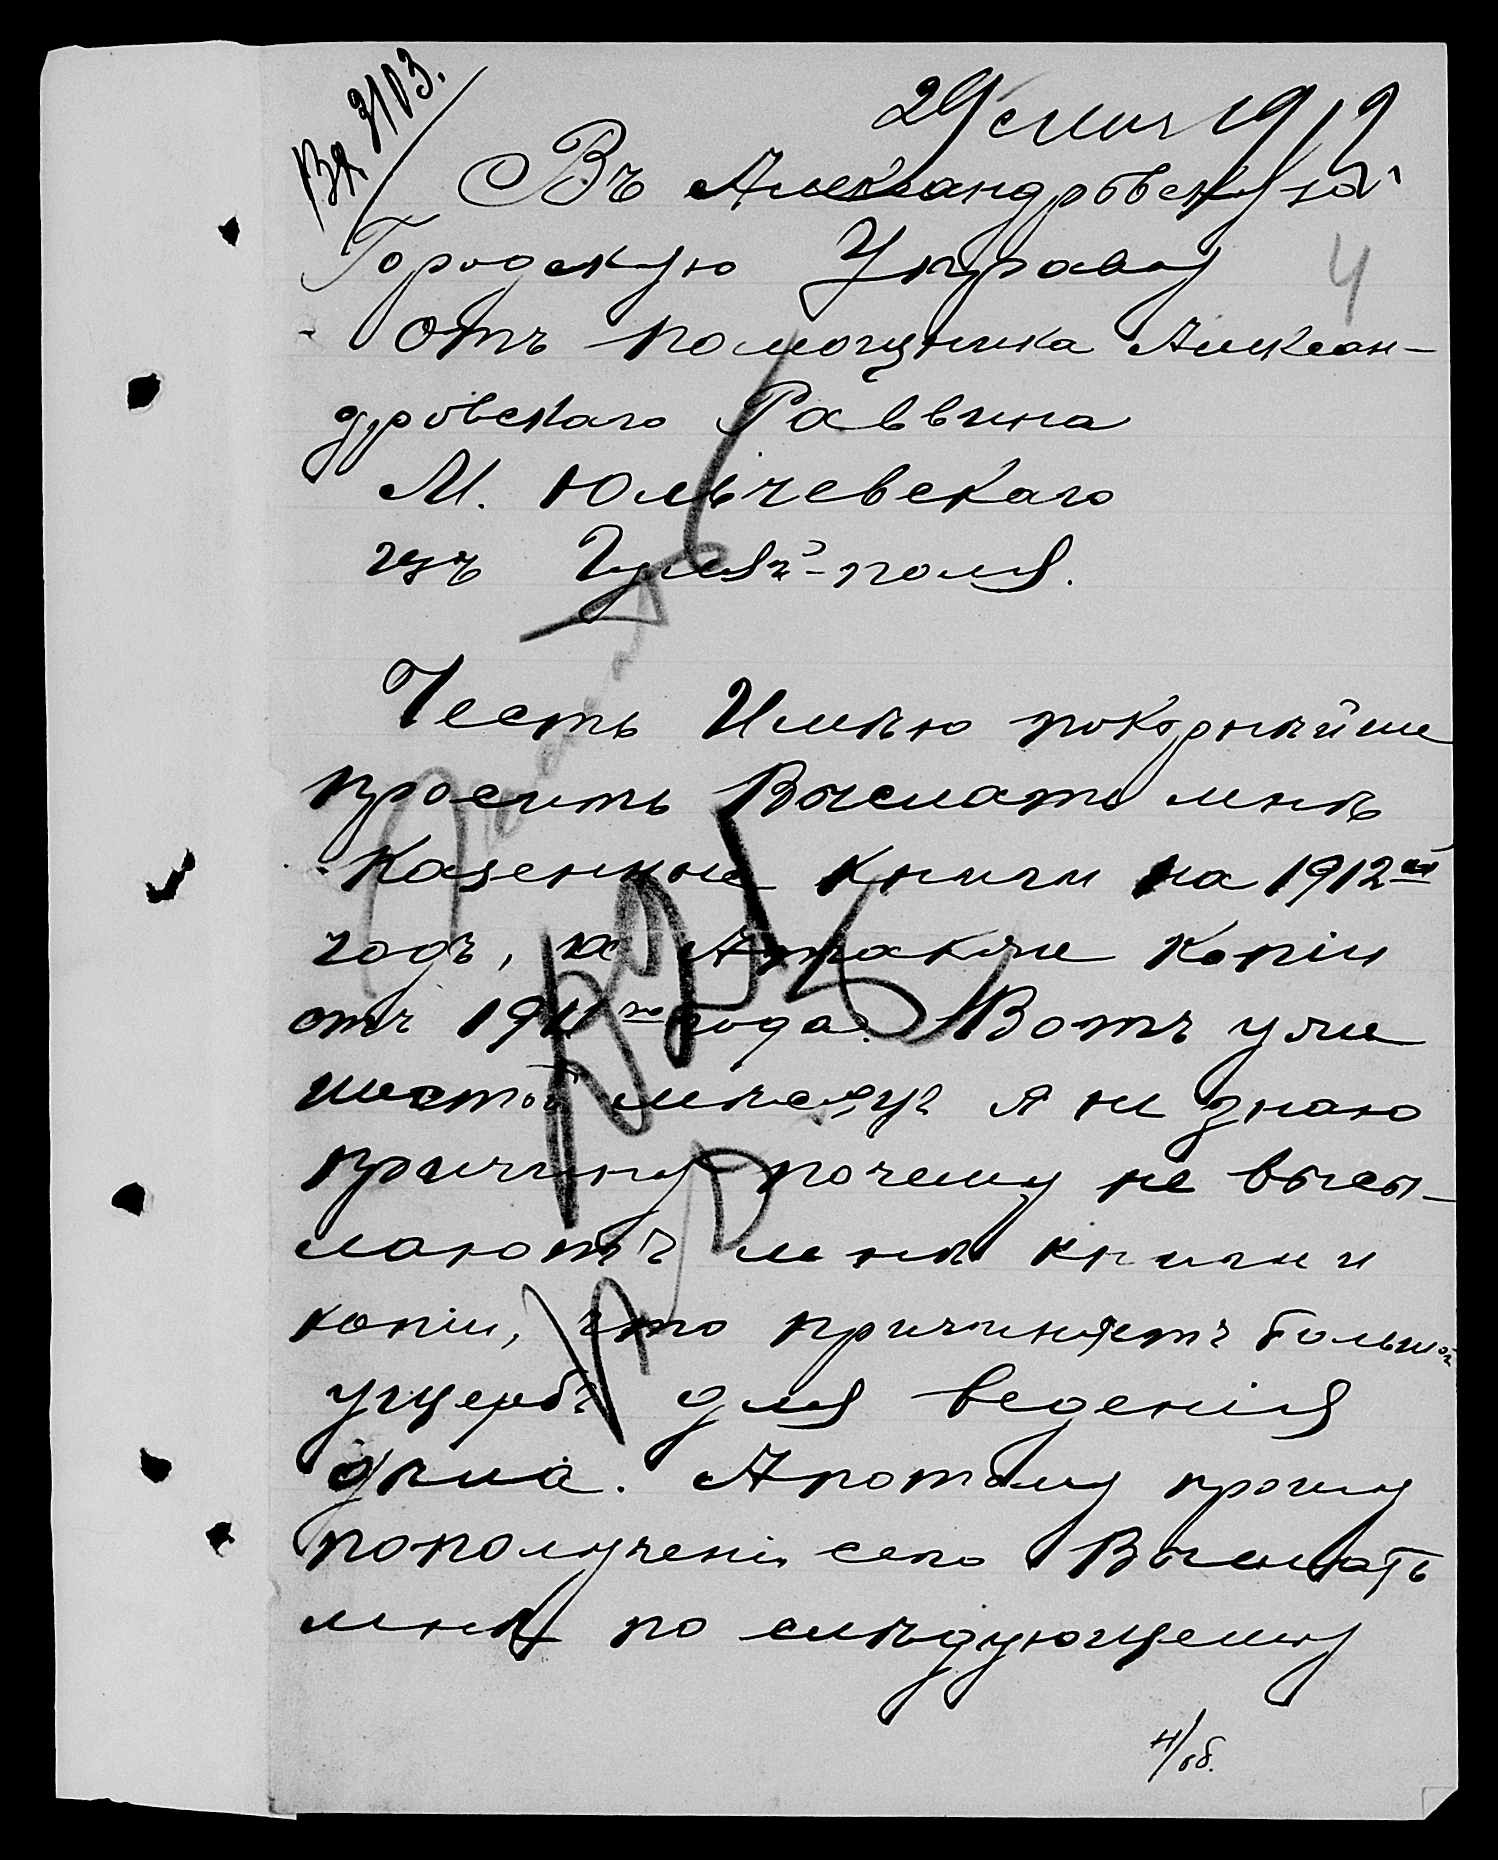 Вх 3103.
29 1912
Въ Александровскую
Городскую Управу
4
отъ помощника Алексан-
дровскаго Раввина
М. Юльчевскаго
изъ Гуляй-поля.
Честь Имѣю покорнѣйше
просить Выслать мнѣ
казенные книги на 1912 ый
годъ, а также копіи
отъ 1911 го года. Вотъ уже
шестой мѣсяцъ я не знаю
причину почему не высы-
лаютъ мнѣ книги и
копіи, что причиняетъ большой
ущербъ для веденія
дѣла. Апотому прошу
пополученіи сего Выслать
мнѣ по слѣдующему
4/об.